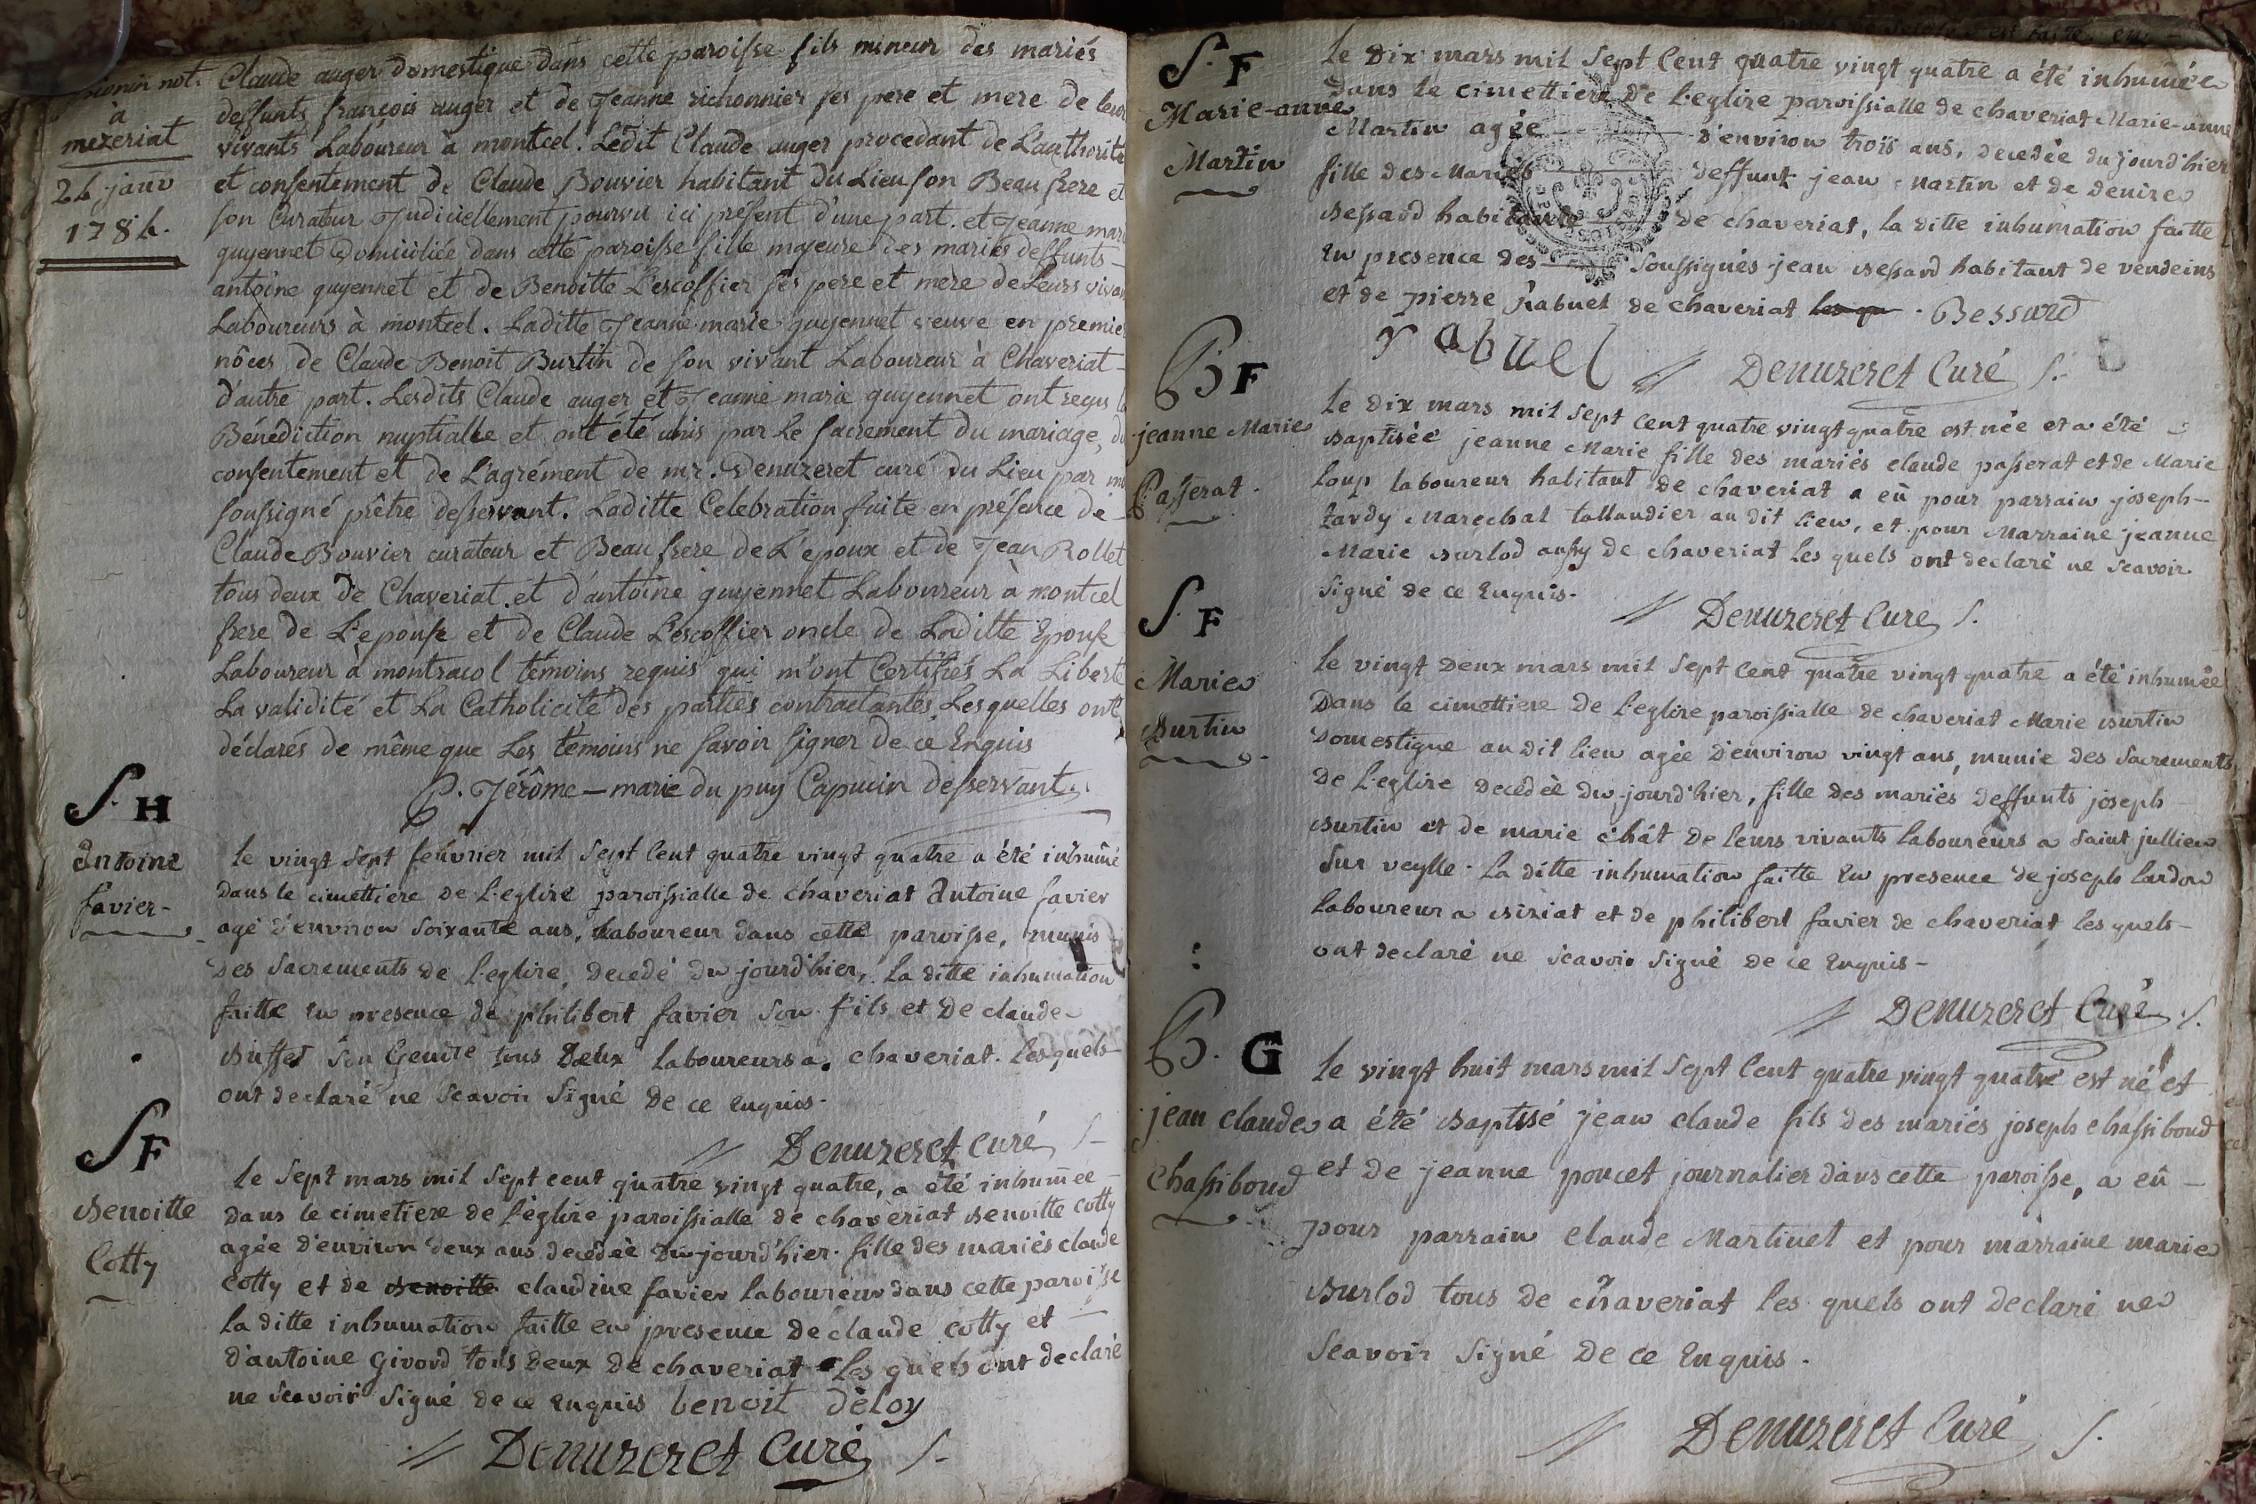 not.
à
mezeriat
24 janv
1784.
Claude auger domestique dans cette paroisse fils mineur des mariés
deffunts françois auger et de Jeanne richonnier ses pere et mere de leur
vivants Laboureur à montcel. Ledit Claude auger procedant de L'authorité
et consentement de Claude Bouvier habitant du Lieu son Beau frere et
son Curateur Judiciellement pourvu ici présent d'une part. et Jeanne mari
guyennet domiciliée dans cette paroisse fille majeure des mariés deffunts
antoine guyennet et de Benoitte Lescoffier ses pere et mere de Leurs vivan
Laboureurs à montcel. Laditte Jeanne marie guyennet veuve en premie
nôces de Claude Benoit Burtin de son vivant Laboureur à Chaveriat
d'autre part. Lesdits Claude auger et Jeanne marie guyennet ont reçus la
Bénédiction nuptialle et ont été unis par Le sacrement du mariage, du
consentement et de L'agrément de mr. Denuzeret curé du Lieu par m
soussigné prêtre desservant. Laditte Celebration faite en présence de
Claude Bouvier curateur et Beau frere de L'epoux et de Jean Rollet
tous deux de Chaveriat. et d'antoine guyennet Laboureur à montcel
frere de L'epouse et de Claude Lescoffier oncle de Laditte Epouse
Laboureur à montracol témoins requis qui m'ont Certifiés La Liberté
La validité et La Catholicité des parties contractantes Lesquelles ont
déclarés de même que Les témoins ne savoir signer de ce Enquis
P. Jérôme-marie du puy Capucin desservant.
S. H
Antoine
favier
le vingt sept feuvrier mil sept cent quatre vingt quatre a été inhumé
dans le cimettiere de l'eglise paroissialle de chaveriat Antoine favier
agé d'environ soixante ans, laboureur dans cette paroisse, munis
des sacrements de l'eglise, decedé du jourd'hier, la ditte inhumation
faitte en presence de philibert favier son fils et de claude
Buffet son Gendre tous Deux laboureurs a chaveriat. lesquels
ont declaré ne scavoir signé de ce enquis.
Denuzeret curé
S F
Benoitte
Cotty
le sept mars mil sept cent quatre vingt quatre, a été inhumée
dans le cimetiere de l'église paroissialle de chaveriat Benoitte cotty
agée d'environ deux ans decédée du jourd'hier. fille des mariés claude
cotty et de benoitte claudine favier laboureur dans cette paroisse
la ditte inhumation faitte en presence de claude cotty et
d'antoine Givord tous deux de chaveriat lesquels ont declaré
ne scavoir signé de ce enquis benoit deloy
Denuzeret Curé
S. F
Marie-anne
Martin
le Dix mars mil sept cent quatre vingt quatre a été inhumée
dans le cimettiere de l'eglise paroissialle de chaveriat Marie-anne
Martin agée d'environ trois ans, decedée du jourd'hier
fille des Mariés deffunt jean Martin et de denise
Bessard habitants de chaveriat, la ditte inhumation faitte
en presence des soussignés jean Bessard habitant de vendeins
et de pierre rabuel de chaveriat les qu . Bessard
rabuel
Denuzeret Curé
B F
jeanne Marie
Passerat
le dix mars mil sept cent quatre vingt quatre est née et a été
Baptisée jeanne Marie fille des mariés claude passerat et de Marie
loup laboureur habitant de chaveriat a eû pour parrain joseph
tardy Marechal tallandier au dit lieu, et pour Marraine jeanne
Marie Burlod aussy de chaveriat les quels ont declaré ne scavoir
signé de ce enquis.
Denuzeret Curé
S. F
Marie
Burtin
le vingt Deux mars mil sept cent quatre vingt quatre a été inhumée
Dans le cimettiere de l'eglise paroissialle de chaveriat Marie Burtin
Domestique au dit lieu agée d'environ vingt ans, munie des sacrements
de l'eglise decedée du jourd'hier, fille des mariés deffunts joseph
Burtin et de marie chât de leurs vivants laboureurs a saint jullien
sur veylle. la ditte inhumation faitte en presence de joseph lardon
laboureur a Biziat et de philibert favier de chaveriat les quels
ont declaré ne scavoir signé de ce enquis
Denuzeret Curé
B. G
jean claude
Chassiboud
le vingt huit mars mil sept cent quatre vingt quatre est né et
a été Baptisé jean claude fils des mariés joseph chassiboud
et de jeanne poncet journalier dans cette paroisse, a eû
pour parrain claude Martinet et pour marraine marie
Burlod tous de chaveriat les quels ont declaré ne
scavoir signé de ce enquis.
Denuzeret Curé